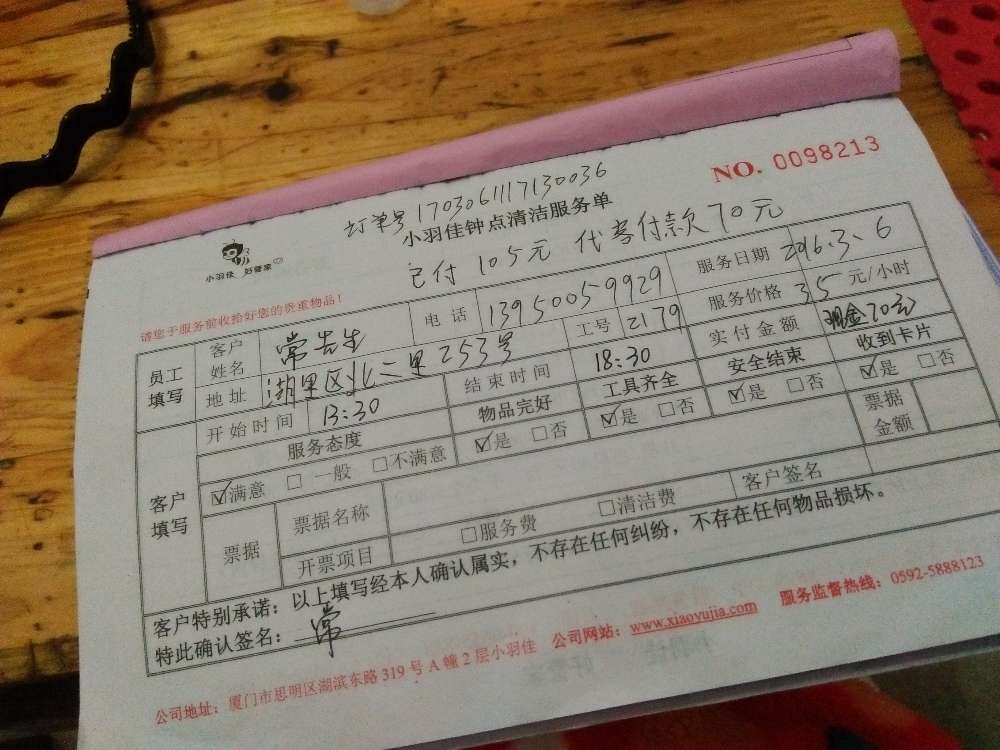 NO. 0098213
订单号 1703061117130036
小羽佳钟点清洁服务单
小羽佳 好管家
已付105元 代客付款70元
请您于服务前收拾好您的贵重物品！
员工填写
客户姓名 常先生 电话 13950059929 服务日期 2016.3.6
地址 湖里区北二里253号 工号 2179 服务价格 35元/小时
开始时间 13:30 结束时间 18:30 实付金额 现金70元
客户填写
服务态度 物品完好 工具齐全 安全结束 收到卡片
☑满意 □一般 □不满意 ☑是 □否 ☑是 □否 ☑是 □否 ☑是 □否
票据 票据名称 票据金额
开票项目 □服务费 □清洁费 客户签名
客户特别承诺：以上填写经本人确认属实，不存在任何纠纷，不存在任何物品损坏。
特此确认签名：常
公司地址：厦门市思明区湖滨东路319号A幢2层小羽佳 公司网站：www.xiaoyujia.com 服务监督热线：0592-5888123